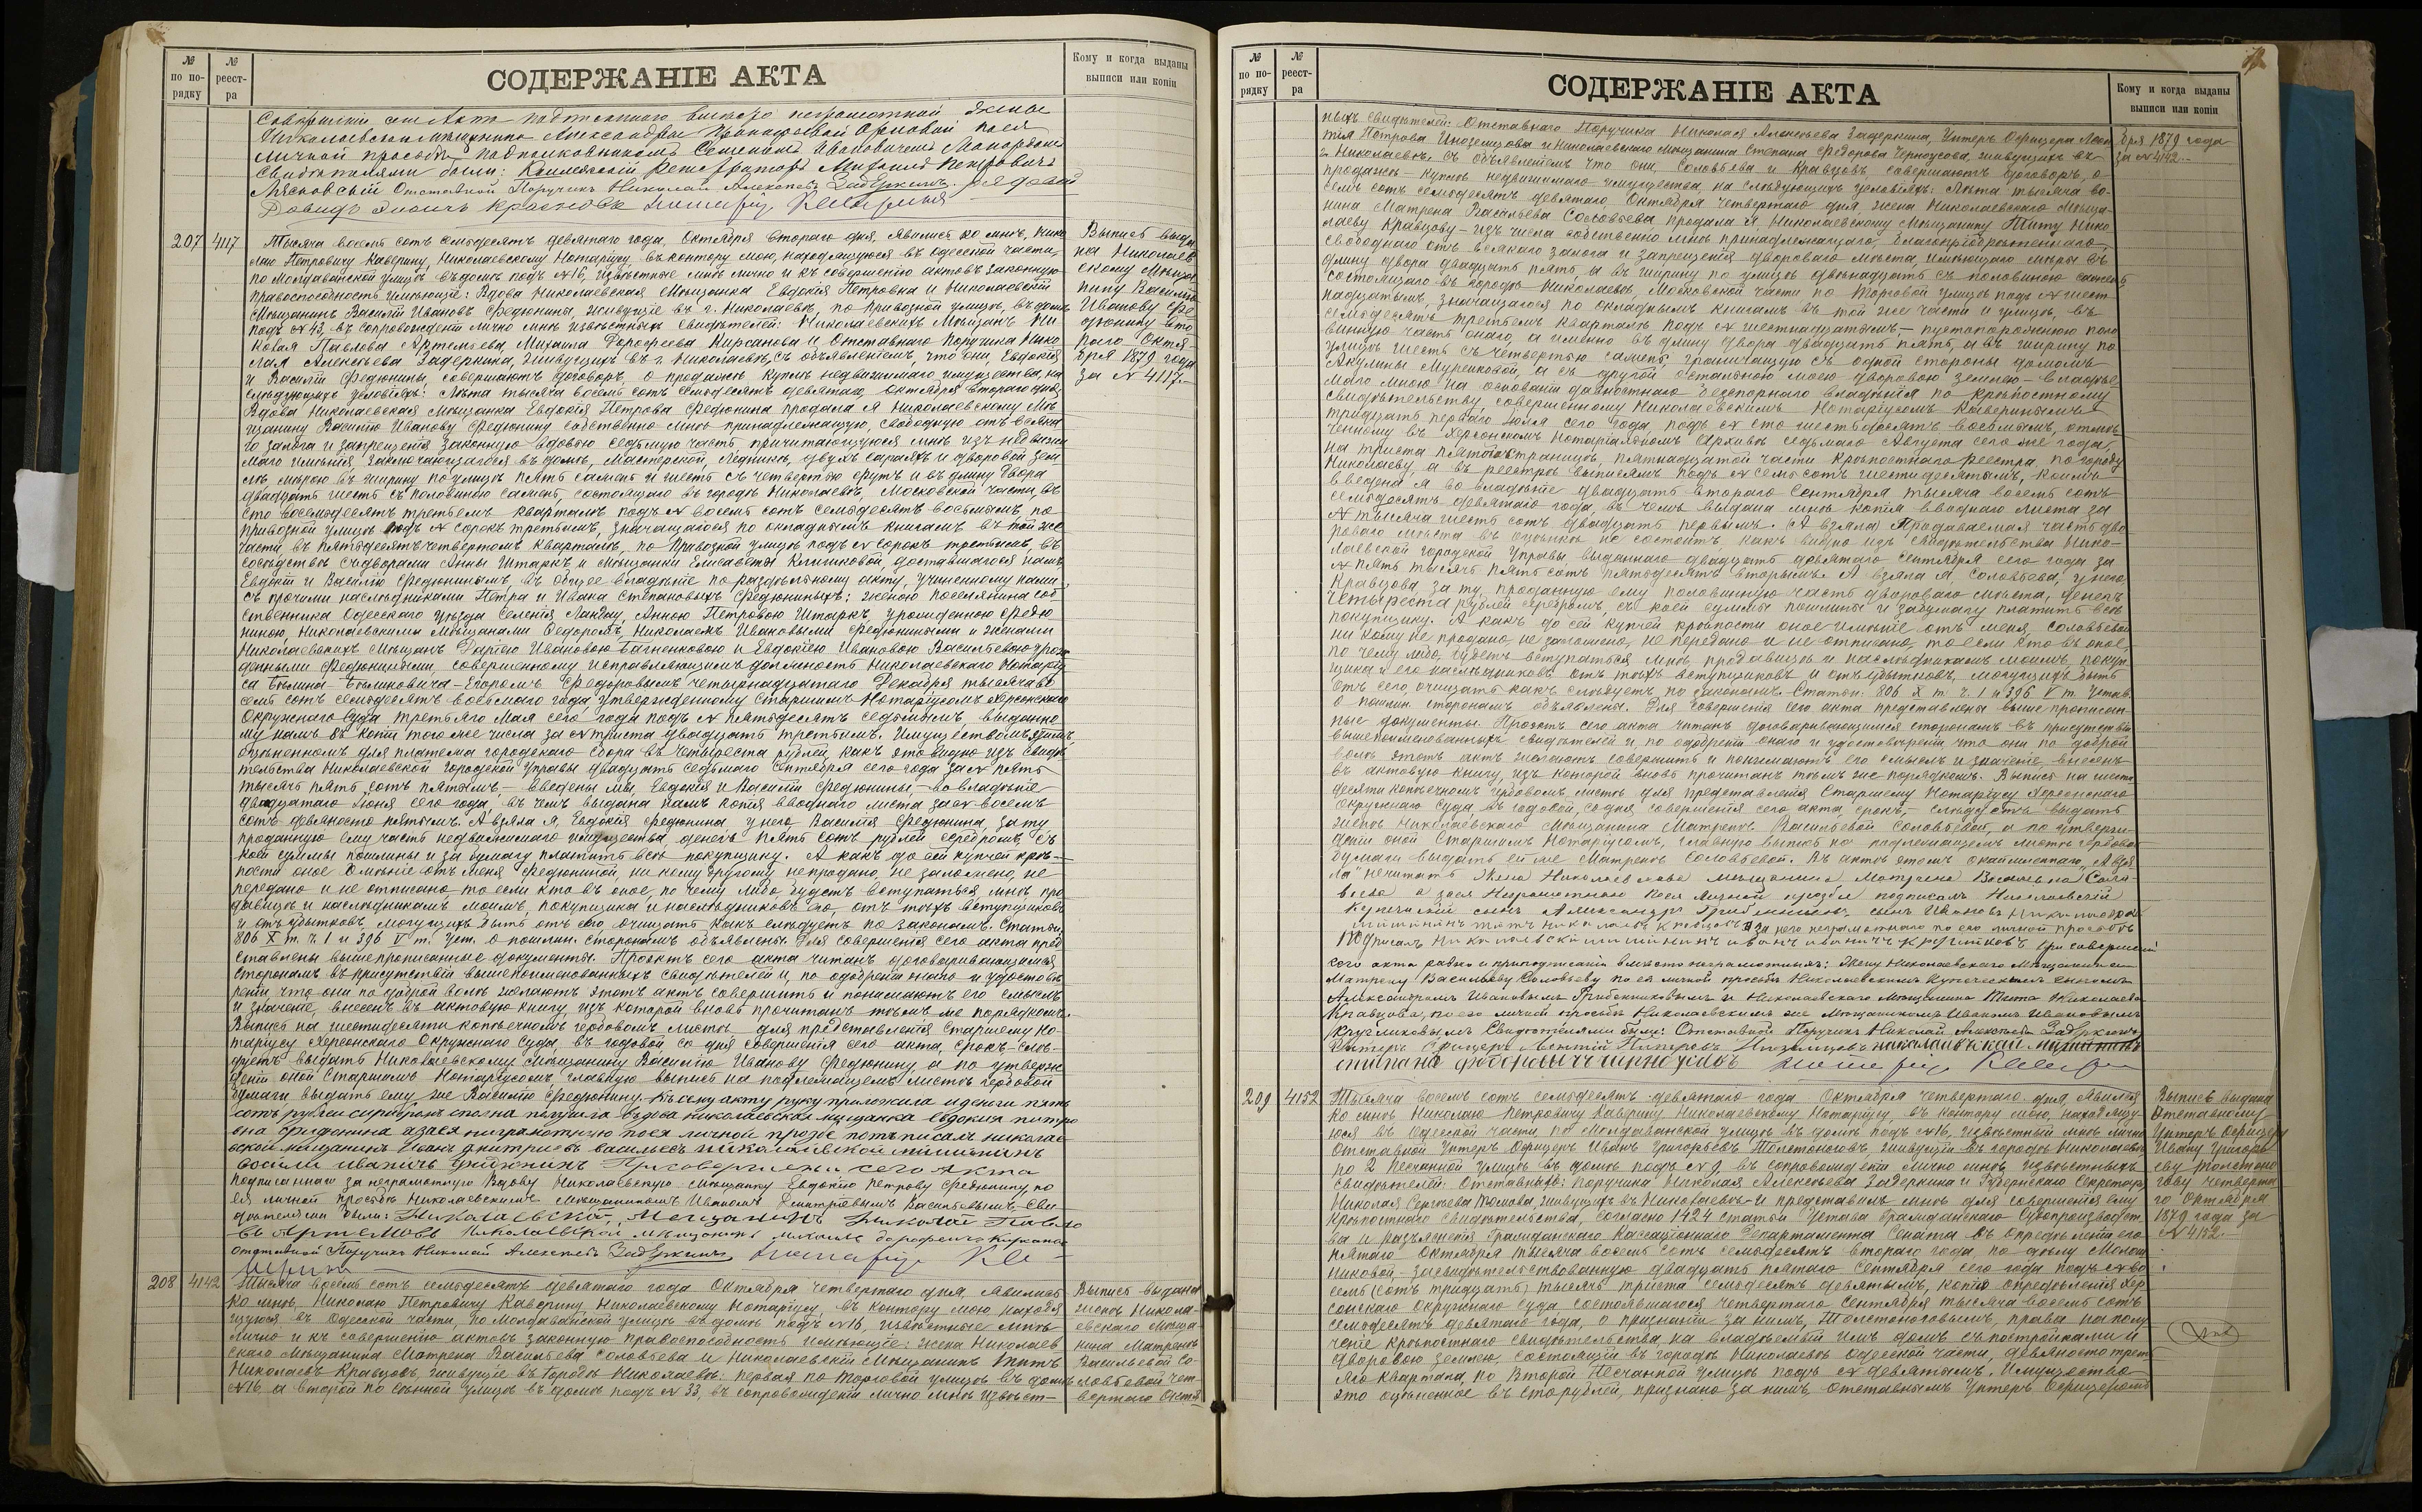 № по по-рядку
№ реест-ра
СОДЕРЖАНІЕ АКТА
Кому и когда выданы выписи или копіи
личной просьбѣ подполковникомъ Семеномъ Ивановичемъ
Свидѣтелями были: Коллежскій Регистраторъ Михаилъ Петровичъ
Отставной Поручикъ Николай Алексеевъ Задеркинъ. рядовой
207 4117
Тысяча восемь сотъ семьдесятъ девятаго года, Октября втораго дня, явились ко мнѣ, Нико
лаю Петровичу Каверину, Николаевскому Нотаріусу, въ контору мою, находящуюся въ Одесской части,
по Молдаванской улицѣ въ домѣ подъ №16, извѣстные мнѣ лично и къ совершенію актовъ законную
правоспособность имѣющіе: Вдова Николаевская Мѣщанка Евдокія Петровна и Николаевскій
Мѣщанинъ Василій Ивановъ Федюнины, живущіе въ г. Николаевѣ, по Привозной улицѣ, въ домѣ
подъ №43, въ сопровожденіи лично мнѣ извѣстныхъ свидѣтелей: Николаевскихъ Мѣщанъ Ни
колая Павлова Артемьева, Михаила Дорофеева Кирсанова и Отставнаго Поручика Нико
лая Алексѣева Задеркина, живущихъ въ г. Николаевѣ, съ объявленіемъ, что они, Евдокія
и Василій Федюнины, совершаютъ договоръ, о продажѣ куплѣ недвижимаго имущества, на
слѣдующихъ условіяхъ: Лѣта тысяча восемь сотъ семьдесятъ девятаго Октября втораго дня,
Вдова Николаевская мѣщанка Евдокія Петрова Федюнина продала я Николаевскому Мѣ
щанину Василію Иванову Федюнину собственно мнѣ принадлежащую, свободную отъ всяка
го залога и запрещенія законную вдовью седьмую часть, причитающуюся мнѣ изъ недвижи
маго имѣнія, заключающагося въ домѣ, мастерской, ледникѣ, двухъ сараяхъ и дворовой зем
лѣ, мѣрою въ ширину по улицѣ пять сажень и шесть съ четвертью футъ и въ длину двора
двадцать шесть съ половиною сажень, состоящаго въ городѣ Николаевѣ, Московской части, въ
сто восемьдесятъ третьемъ кварталѣ подъ № восемь сотъ семьдесятъ восьмымъ, по
Привозной улицѣ подъ № сорокъ третьимъ, значащагося по окладнымъ книгамъ въ той же
части, въ пятьдесятъ четвертомъ кварталѣ, по Привозной улицѣ подъ № сорокъ третьимъ, въ
сосѣдствѣ съ дворами Анны Штаркъ и мѣщанки Елисаветы Климковой, доставшагося намъ
Евдокіи и Василію Федюнинымъ, въ общее владѣніе по раздѣльному акту, учиненному нами
съ прочими наслѣдниками Петра и Ивана Степановыхъ Федюниныхъ: женою поселянина соб
ственника Одесскаго уѣзда Селенія Ландау, Анною Петровою Штаркъ, урожденною Федю
ниною, Николаевскими Мѣщанами Федоромъ, Николаемъ Ивановыми Федюниными и женами
Николаевскихъ Мѣщанъ Дарьею Ивановою Багненковою и Евдокіею Ивановою Васильевою урож
денными Федюниными, совершенному исправляющимъ должность Николаевскаго Нотаріу
са Бѣлина-Бѣликовича-Егоромъ Федоровымъ четырнадцатаго Декабря тысяча во
семь сотъ семьдесятъ восьмаго года, утвержденному Старшимъ Нотаріусомъ Херсонскаго
Окружнаго Суда, третьяго Мая сего года подъ № пятьдесятъ седьмымъ, выданно
му намъ въ копіи того же числа за № триста двадцать третьимъ. Имуществомъ этимъ
оцѣненномъ для платежа городскаго сбора въ четыреста рублей, какъ это видно изъ свидѣ
тельства Николаевской Городской Управы двадцать седьмаго Сентября сего года за № пять
тысячъ пять сотъ пятымъ,- введены мы, Евдокія и Василій Федюнины,- во владѣніе
двадцатаго Іюня сего года, въ чемъ выдана намъ копія вводнаго листа за № восемь
сотъ девяносто пятымъ. А взяла я, Евдокія Федюнина у него Василія Федюнина, за ту
проданную ему часть недвижимаго имущества, денегъ пять сотъ рублей серебромъ, съ
коей суммы пошлины и за бумагу платить всѣ покупщику. А какъ до сей купчей крѣ-
пости оное имѣніе отъ меня Федюниной, ни кому другому непродано, не заложено, не
передано и не отписано то если кто въ оное, по чему либо, будетъ вступаться мнѣ, про
давицѣ и наслѣдникамъ моимъ, покупщика и наслѣдниковъ его, отъ тѣхъ вступщиковъ
и отъ убытковъ могущихъ быть отъ сего очищать какъ слѣдуетъ по законамъ. Статьи
806 X т. ч. 1 и 396 V т. Уст. о пошлин. сторонамъ объявлены. Для совершенія сего акта пред
ставлены вышепрописанные документы. Проэктъ сего акта читанъ договаривающимся
сторонамъ въ присутствіи вышепоименованныхъ свидѣтелей и, по одобреніи онаго и удостовѣ
реніи, что они по доброй волѣ желаютъ этотъ актъ совершить и понимаютъ его смыслъ
и значеніе, внесенъ въ актовую книгу изъ которой вновь прочитанъ тѣмъ же порядкомъ.
Выпись на шестидесяти копѣечномъ гербовомъ листѣ для представленія Старшему Но
таріусу Херсонскаго Окружнаго Суда, въ годовой со дня совершенія сего акта, срокъ слѣ-
дуетъ выдать Николаевскому Мѣщанину Василію Иванову Федюнину, а по утверж
деніи оной Старшимъ Нотаріусомъ, главную выпись на надлежащемъ листѣ гербовой
бумаги выдать ему же Василію Федюнину. Къ сему акту руку приложила и деньги пять
сотъ рублей серебромъ сполна получила вдова николаевская мещанка евдокия петро
вна федюнина а за ея неграмотную по ея личной прозбе подписалъ николае
вской мещанинъ Иванъ дмитриевъ васильевъ николаевской мешанинъ
восили иванычъ федюнинъ При совершении сего акта
подписаннаго за неграмотную Вдову Николаевскую мѣщанку Евдокію Петрову Федюнину, по
ея личной просьбѣ Николаевскимъ Мѣщаниномъ Иваномъ Дмитріевымъ Васильевымъ Сви
дѣтелями были: Николаевской, Мещанинъ Николай Павло
въ Артемовъ Николаевской мещанинъ михаила дорофеевъ Кирсановъ
Отставной Поручикъ Николай Алексеевъ Задеркинъ Нотаріусъ
Выпись выда
на Николаев
скому Мѣща
нину Василію
Иванову Фе
дюнину вто
раго Октя-
бря 1879 года
за № 4117.
208 4142
Тысяча восемь сотъ семьдесятъ девятаго года Октября четвертаго дня, явились
ко мнѣ, Николаю Петровичу Каверину, Николаевскому Нотаріусу, въ контору мою находя
щуюся въ Одесской части, по Молдаванской улицѣ въ домѣ подъ №16, извѣстные мнѣ
лично и къ совершенію актовъ законную правоспособность имѣющіе: жена Николаев
скаго Мѣщанина Матрена Васильева Соловьева и Николаевскій Мѣщанинъ Титъ
Николаевъ Кравцовъ, живущіе въ городѣ Николаевѣ: первая по Торговой улицѣ въ домѣ
№16, а второй по Сѣнной улицѣ въ домѣ подъ № 33, въ сопровожденіи лично мнѣ извѣст-
Выпись выдана
женѣ Никола-
евскаго Мѣща
нина Матренѣ
Васильевой Со-
ловьевой чет-
вертаго Октя
№ по по-рядку
№ реест-ра
СОДЕРЖАНІЕ АКТА
Кому и когда выданы выписи или копіи
ныхъ свидѣтелей: Отставнаго Поручика Николая Алексѣева Задеркина, Унтеръ Офицера Леон
тія Петрова Иноземцова и Николаевскаго Мѣщанина Степана Федорова Черноусова, живущихъ въ
г. Николаевѣ. съ объявленіемъ что они, Соловьева и Кравцовъ, совершаютъ договоръ, о
продажѣ-куплѣ недвижимаго имущества, на слѣдующихъ условіяхъ: Лѣта тысяча во-
семь сотъ семьдесятъ девятаго, Октября четвертаго дня жена Николаевскаго Мѣща-
нина Матрена Васильева Соловьева продала я, Николаевскому Мѣщанину Титу Нико
лаеву Кравцову-изъ числа собственно мнѣ принадлежащаго, благопріобрѣтеннаго,
свободнаго отъ всякаго залога и запрещенія двороваго мѣста, имѣющаго мѣры въ
длину двора двадцать пять, а въ ширину по улицѣ двѣнадцать съ половиною сажень
состоящаго въ городѣ Николаевѣ, Московской части по Торговой улицѣ подъ № шест-
надцатымъ, значащагося по окладнымъ книгамъ въ той же части и улицѣ, въ
семьдесятъ третьемъ кварталѣ подъ № шестнадцатымъ-пустопорожнюю поло
винную часть онаго, а именно въ длину двора двадцать пять, а въ ширину по
улицѣ шесть съ четвертью сажень, граничащую съ одной стороны домомъ
Акулины Муренковой, а съ другой остальною моею дворовою землею-владѣе
маго мною на основаніи давностнаго безспорнаго владѣнія по крѣпостному
свидѣтельству, совершенному Николаевскимъ Нотаріусомъ Каверинымъ
тридцать перваго Іюля сего года, подъ № сто шестьдесятъ восьмымъ, отмѣ-
ченному въ Херсонскомъ Нотаріальномъ Архивѣ седьмаго Августа сего же года,
на триста пятой страницѣ, пятнадцатой части крѣпостнаго реестра по городу
Николаеву, а въ реестрѣ выписямъ подъ № семь сотъ шестидесятымъ, коимъ
введена я во владѣніе двадцать втораго Сентября тысяча восемь сотъ
семьдесятъ девятаго года, въ чемъ выдана мнѣ копія вводнаго листа за
№ тысяча шесть сотъ двадцать первымъ. (А взяла) Продаваемая часть дво-
роваго мѣста въ оцѣнкѣ не состоитъ, какъ видно изъ свидѣтельства Нико-
лаевской городской Управы, выданнаго двадцать девятаго Сентября сего года за
№ пять тысячъ пять сотъ пятьдесятъ вторымъ. А взяла я, Соловьева, у него,
Кравцова, за ту, проданную ему половинную часть двороваго мѣста, денегъ
четыреста рублей серебромъ, съ коей суммы пошлины и за бумагу платить всѣ
покупщику. А какъ до сей купчей крѣпости оное имѣніе отъ меня, Соловьевой
ни кому не продано, не заложено, не передано и не отписано, то если кто въ оное,
по чему либо, будетъ вступаться мнѣ, продавицѣ и наслѣдникамъ моимъ, покуп
щика и его наслѣдниковъ, отъ тѣхъ вступщиковъ и отъ убытковъ, могущихъ быть
отъ сего, очищать какъ слѣдуетъ, по законамъ. Статьи: 806 X т. ч. 1 и 396 V т. Устав.
о пошлин. сторонамъ объявлены. Для совершенія сего акта представлены выше прописан-
ные документы. Проэктъ сего акта читанъ договаривающимся сторонамъ въ присутствіи
вышепоименованныхъ свидѣтелей и, по одобреніи онаго и удостовѣреніи, что они по доброй
волѣ этотъ актъ желаютъ совершить и понимаютъ его смыслъ и значеніе, внесенъ
въ актовую книгу, изъ которой вновь прочитанъ тѣмъ же порядкомъ. Выпись на шести
десяти копѣечномъ гербовомъ листѣ для представленія Старшему Нотаріусу Херсонскаго
Окружнаго Суда, въ годовой, со дня совершенія сего акта, срокъ,- слѣдуетъ выдать
женѣ Николаевскаго Мѣщанина Матренѣ Васильевой Соловьевой, а по утверж-
деніи оной Старшимъ Нотаріусомъ, главную выпись на надлежащемъ листѣ гербовой
бумаги выдать ей же Матренѣ Соловьевой. Въ актѣ этомъ окабленнаго „А взя
ла" нечитать Жена Николаевскаго мещанина Матрена Васильевна Соло-
вьева а за ея Неграмотною поея Личной прозбе подписалъ Николаевскій
Купеческій сынъ Александръ Гребенниковъ, сынъ Ивановъ
титъ николаевъ Кравцовъ а за него неграмотнаго по его личной прозбѣ
Подписалъ Николаевскій мещанинъ иванъ иваничъ Кругликовъ при совершеніи
сего акта равно и приподписаніи вмѣсто неграмотныхъ: Жену Николаевскаго Мѣщанина
Матрену Васильеву Соловьеву по ея личной просьбѣ Николаевскимъ Купеческимъ сыномъ
Александромъ Ивановымъ Гребенниковымъ и Николаевскаго Мѣщанина Тита Николаева
Кравцова, по его личной просьбѣ Николаевскимъ же Мѣщаниномъ Иваномъ Ивановымъ
Кругликовымъ Свидѣтелями были: Отставной Поручикъ Николай Алексеевъ Задеркинъ
Унтеръ Офицеръ Леонтій Питровъ Иноземцовъ николаивскай мещанинъ
Нотаріусъ
бря 1879 года
за №4142.
209 4152
Тысяча восемь сотъ семьдесятъ девятаго года Октября четвертаго дня, явился
ко мнѣ Николаю Петровичу Каверину Николаевскому Нотаріусу, въ контору мою, находящу-
юся въ Одесской части, по Молдаванской улицѣ въ домѣ подъ №16, извѣстный мнѣ лично
Отставной Унтеръ Офицеръ Иванъ Григорьевъ Толстоноговъ, живущій въ городѣ Николаевѣ
по 2 Песчанной улицѣ въ домѣ подъ № 9, въ сопровожденіи лично мнѣ извѣстныхъ
свидѣтелей: Отставныхъ: Поручика Николая Алексѣева Задеркина и Губернскаго Секретаря
Николая Сергѣева Томова, живущихъ въ Николаевѣ-и представилъ мнѣ для совершенія ему
крѣпостнаго свидѣтельства, согласно 1424 статьи Устава Гражданскаго Судопроизводст-
ва и разъясненія Гражданскаго Кассаціоннаго Департамента Сената въ опредѣленіи его
пятаго Октября тысяча восемь сотъ семьдесятъ втораго года, по дѣлу
никовой,-засвидѣтельствованную двадцать пятаго Сентября сего года подъ № во
семь (сотъ тридцать) тысячъ триста семьдесятъ девятымъ, копію опредѣленія Хер
сонскаго Окружнаго Суда, состоявшагося четвертаго Сентября тысяча восемь сотъ
семьдесятъ девятаго года, о признаніи за нимъ, Толстоноговымъ, права на полу
ченіе крѣпостнаго свидѣтельства, на владѣемый имъ домъ съ постройками и
дворовою землею, состоящій въ городѣ Николаевѣ Одесской части, девяносто треть
яго квартала, по Второй Песчанной улицѣ подъ № девятымъ. Имущество
это оцѣненное въ сто рублей, признано за нимъ отставнымъ Унтеръ Офицеромъ
Выпись выдана
Отставному
Унтеръ Офицеру
Ивану Григорье
ву Толстоно
гову четверта
го Октября
1879 года за
№ 4152.